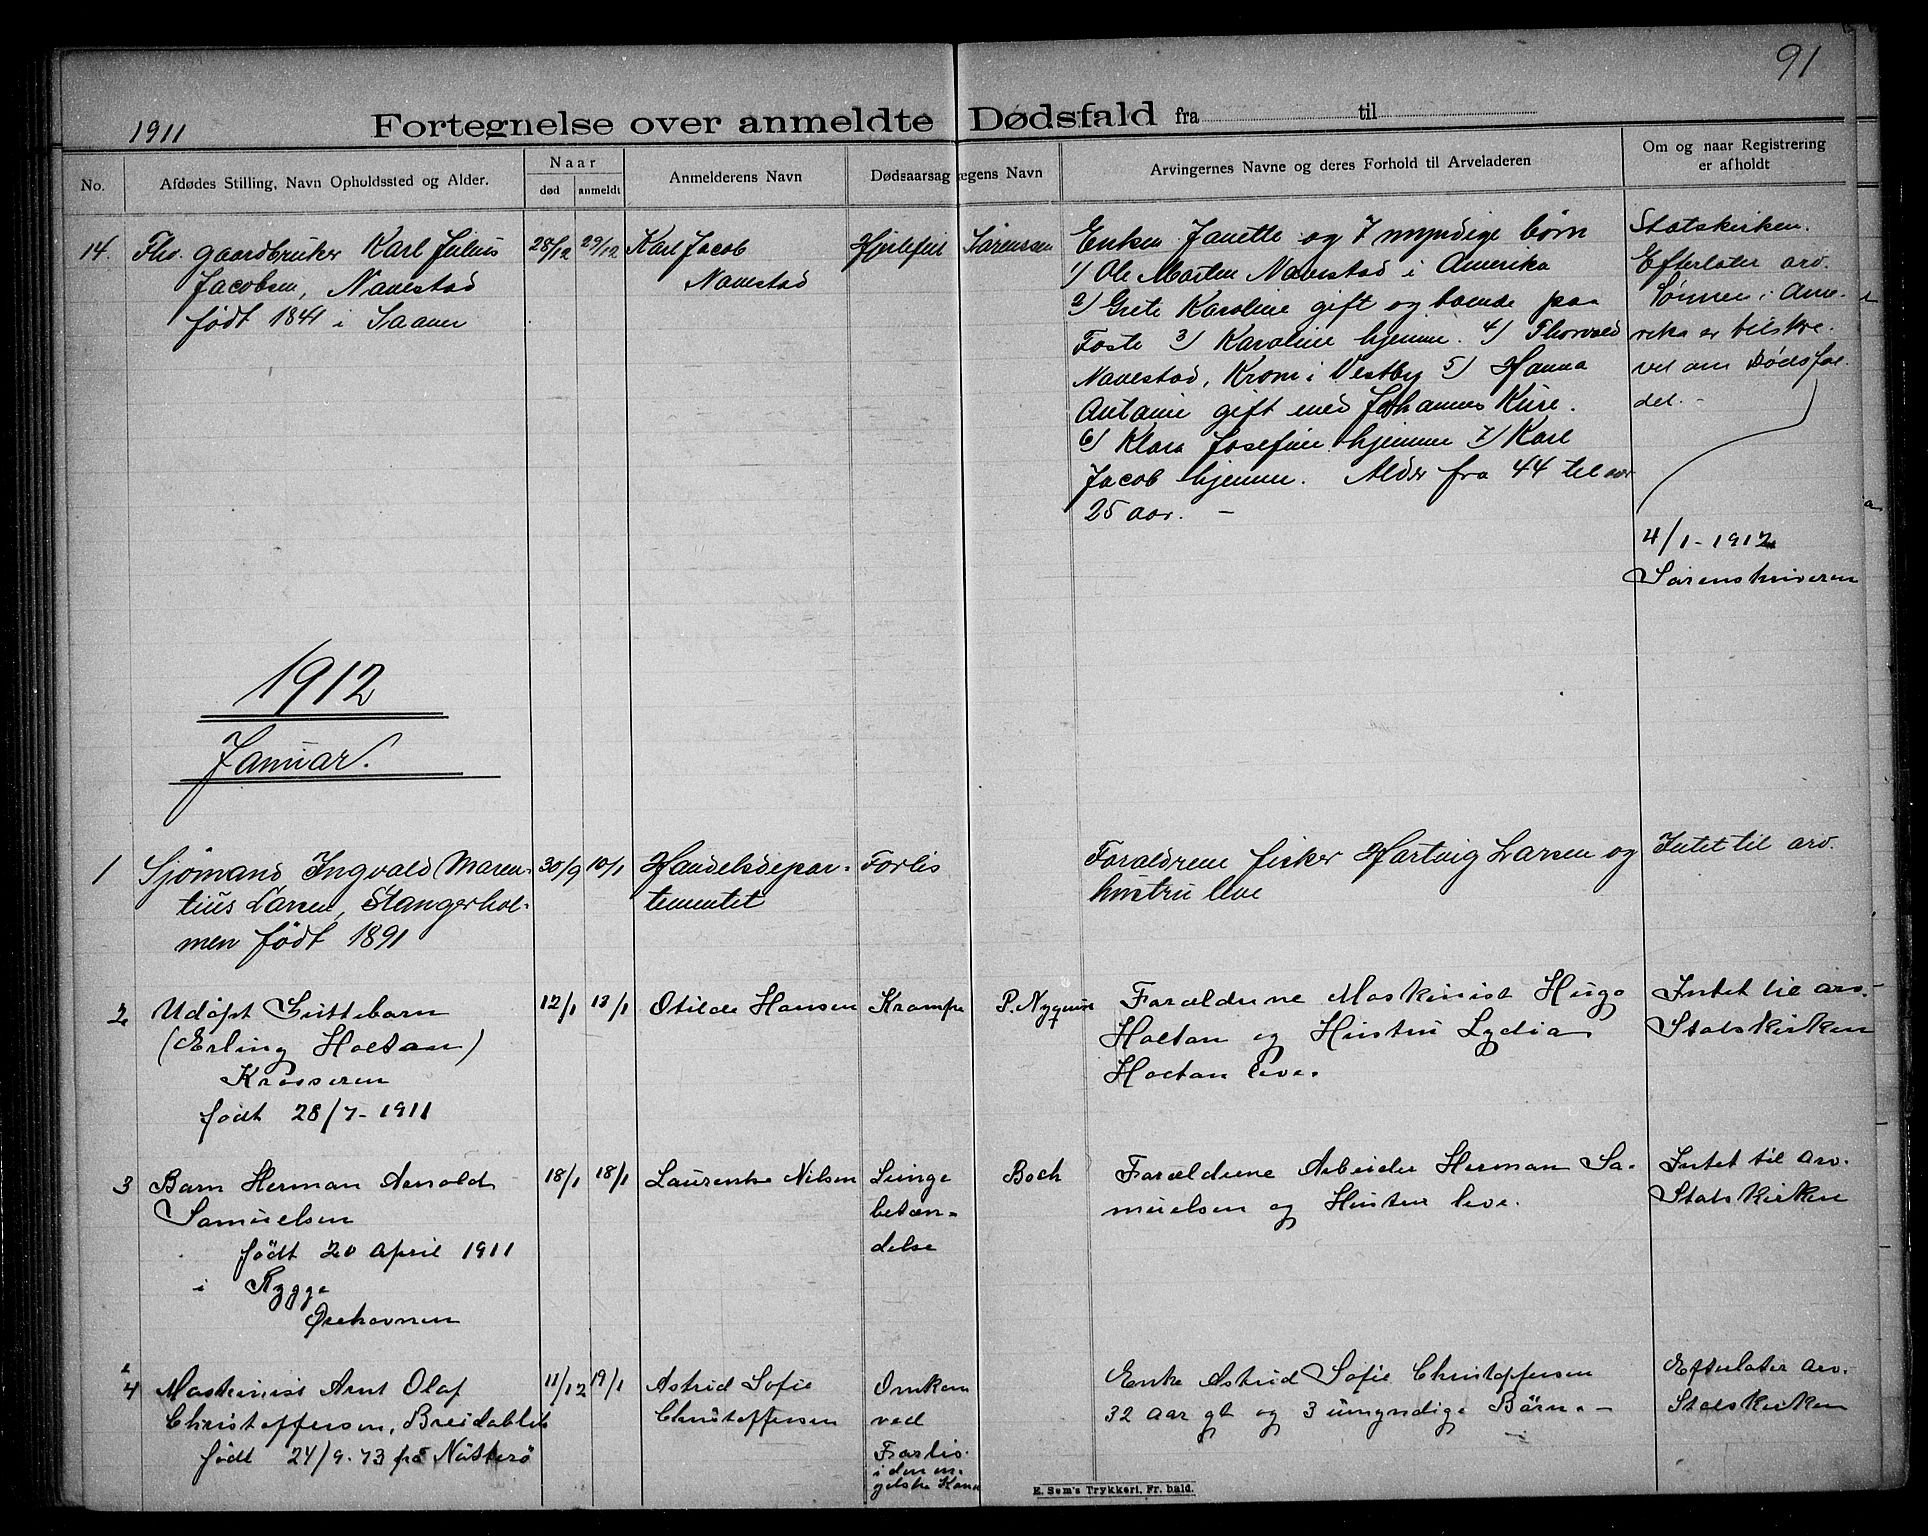 91
1911
Fortegnelse over anmeldte Dødsfald fra til
No.
Afdødes Stilling, Navn Opholdssted og Alder.
Naar
død anmeldt
Anmelderens Navn
Dødsaarsag
ægens Navn
Arvingernes Navne og deres Forhold til Arveladeren
Om og naar Registrering
er afholdt
14.
Fho. gaardbruker Karl Julius
Jacobsen, Navestad
født 1841 i Saaner
28/12 29/12
Karl Jacob
Navestad
Hjertefeil
Sørensen
Enken Janette og 7 myndige børn
1) Ole Marten Navestad i Amerika
2) Grete Karoline gift og boende paa
3) Karoline hjemme. 4) Thorvald
Navestad, Krom i Vestby 5) Hanna
Antanie gift med Johannes Kure.
6) Klara Josefine hjemme 7) Karl
Jacob hjemme. Alder fra 44 til
25 aar. -
Statskirken.
Efterlater arv.
Sønnen i Ame-
rika er tilskre-
vet om Dødsfal-
det. -
4/1-1912
Sorenskriveren
1912
Januar.
1
Sjømand Ingvald Maren-
tius Larsen, Stangerhol-
men født 1891
30/9 10/1
Handelsdepar-
tementet
Forlis
Forældrene fisker Hartvig Larsen og
hustru leve
Intet til arv.
2
Udøpt Guttebarn
(Erling Holtan)
Krosseren
født 28/7-1911
12/1 13/1
Otilde Hansen
Krampe
P. Nyquist
Forældrene Maskinist Hugo
Holtan og Hustru Lydia
Holtan leve.
Intet til arv.
Statskirken
3
Barn Herman Arnold
Samuelsen
født 20 April 1911
i Rygge
Ørehavnen
18/1 18/1
Laurentse Nilsen
Lunge
betæn-
delse
Boch
Forældrene Arbeider Herman Sa-
muelsen og Hustru leve.
Intet til arv.
Statskirken
4
Maskinist Arnt Olaf
Christoffersen, Breidablik
født 24/9-73 på Nøtterø
11/12 19/1
Astrid Sofie
Christoffersen
Omkom
ved
Forlis
i den en-
gelske Kanal
Enke Astrid Sofie Christoffersen
32 aar gl og 3 umyndige Børn. -
Efterlater arv.
Statskirken
E. Sem's Trykkeri, Fr. hald.